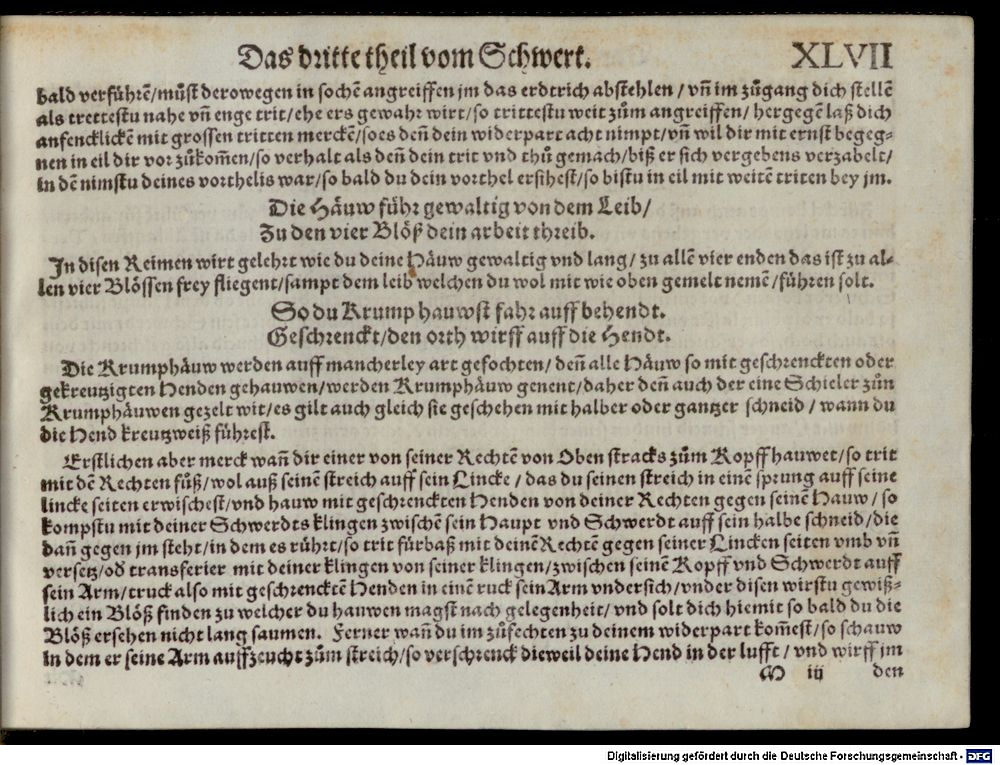 Das dritte theil vom Schwert. XLVII
bald verführẽ/můst derowegen in sochẽ angreiffen jm das erdtrich abstehlen / vñ im zůgang dich stellẽ
als trettestu nahe vñ enge trit/ehe ers gewahr wirt/so trittestu weit zům angreiffen/ hergegẽ laß dich
anfencklickẽ mit grossen tritten merckẽ/so es deñ dein widerpart acht nimpt/vñ wil dir mit ernst begeg⸗
nen in eil dir vor zůkom̃en/so verhalt als deñ dein trit vnd thů gemach/biß er sich vergebens verzabelt/
in dẽ nimstu deines vorthelis war/so bald du dein vorthel ersihest/so bistu in eil mit weitẽ triten bey jm.
Die Häuw führ gewaltig von dem Leib/
Zu den vier Blöß dein arbeit threib.
In disen Reimen wirt gelehrt wie du deine Häuw gewaltig vnd lang/ zu allẽ vier enden das ist zu al⸗
len vier Blössen frey fliegent/sampt dem leib welchen du wol mit wie oben gemelt nemẽ/führen solt.
So du Krump hauwst fahr auff behendt.
Geschrenckt/den orth wirff auff die Hendt.
Die Krumphäuw werden auff mancherley art gefochten/ deñ alle Häuw so mit geschrenckten oder
gekreutzigten Henden gehauwen/werden Krumphäuw genent/daher deñ auch der eine Schieler zůn
Krumphäuwen gezelt wit/es gilt auch gleich sie geschehen mit halber oder gantzer schneid / wann du
die Hend kreutzweiß führest.
Erstlichen aber merck wañ dir einer von seiner Rechtẽ von Oben stracks zům Kopff hauwet/so trit
mit dẽ Rechten fůß/wol auß seinẽ streich auff sein Lincke / das du seinen streich in einẽ sprung auff seine
lincke seiten erwischest/vnd hauw mit geschrenckten Henden von deiner Rechten gegen seinẽ Hauw / so
kompstu mit deiner Schwerdts klingen zwischẽ sein Haupt vnd Schwerdt auff sein halbe schneid/die
dañ gegen jm steht/in dem es rührt/so trit fürbaß mit deinẽ Rechtẽ gegen seiner Lincken seiten vmb vñ
versetz/oď transferier mit deiner klingen von seiner klingen/zwischen seinẽ Kopff vnd Schwerdt auff
sein Arm/truck also mit geschrencktẽ Henden in einẽ ruck sein Arm vndersich/vnder disen wirstu gewiß⸗
lich ein Blöß finden zu welcher du hauwen magst nach gelegenheit/ vnd solt dich hiemit so bald du die
Blöß ersehen nicht lang saumen. Ferner wañ du im zůfechten zu deinem widerpart kom̃est/so schauw
in dem er seine Arm auffzeucht zům streich/so verschrenck dieweil deine Hend in der lufft / vnd wirff jm
M iij den
Digitalisierung gefördert durch die Deutsche Forschungsgemeinschaft - DFG